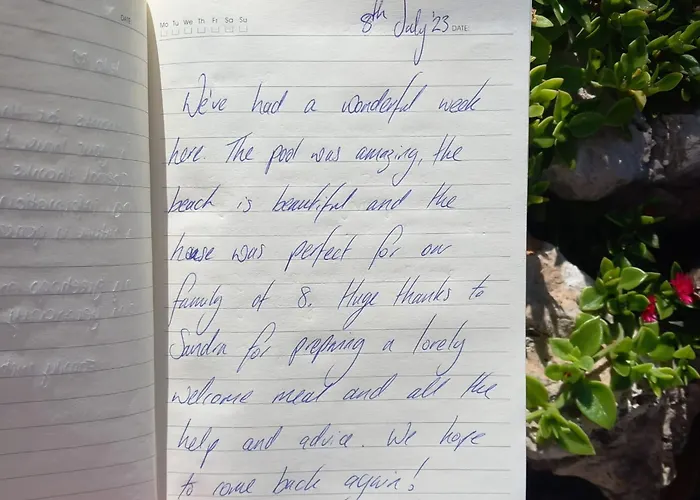 DATE
Mo Tu We Th Fr Sa Su
8th July '23 DATE:
We've had a wonderful week
here. The pool was amazing, the
beach is beautiful and the
house was perfect for our
family of 8. Huge thanks to
Sandra for preparing a lovely
welcome meal and all the
help and advice. We hope
to come back again!